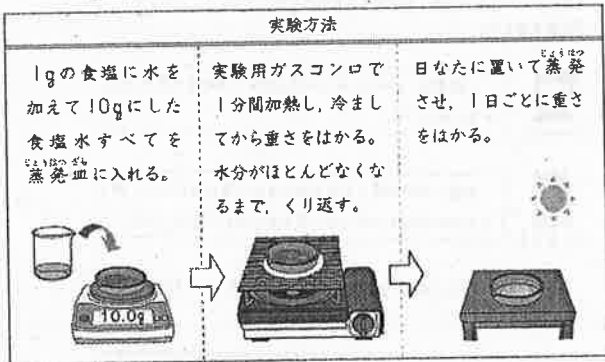 実験方法
1gの食塩に水を
加えて10gにした
食塩水すべてを
じょうはつざら
蒸発皿に入れる。
10.0g
実験用ガスコンロで
1分間加熱し,冷まし
てから重さをはかる。
水分がほとんどなくな
るまで,くり返す。
じょうはつ
日なたに置いて蒸発
させ,1日ごとに重さ
をはかる。